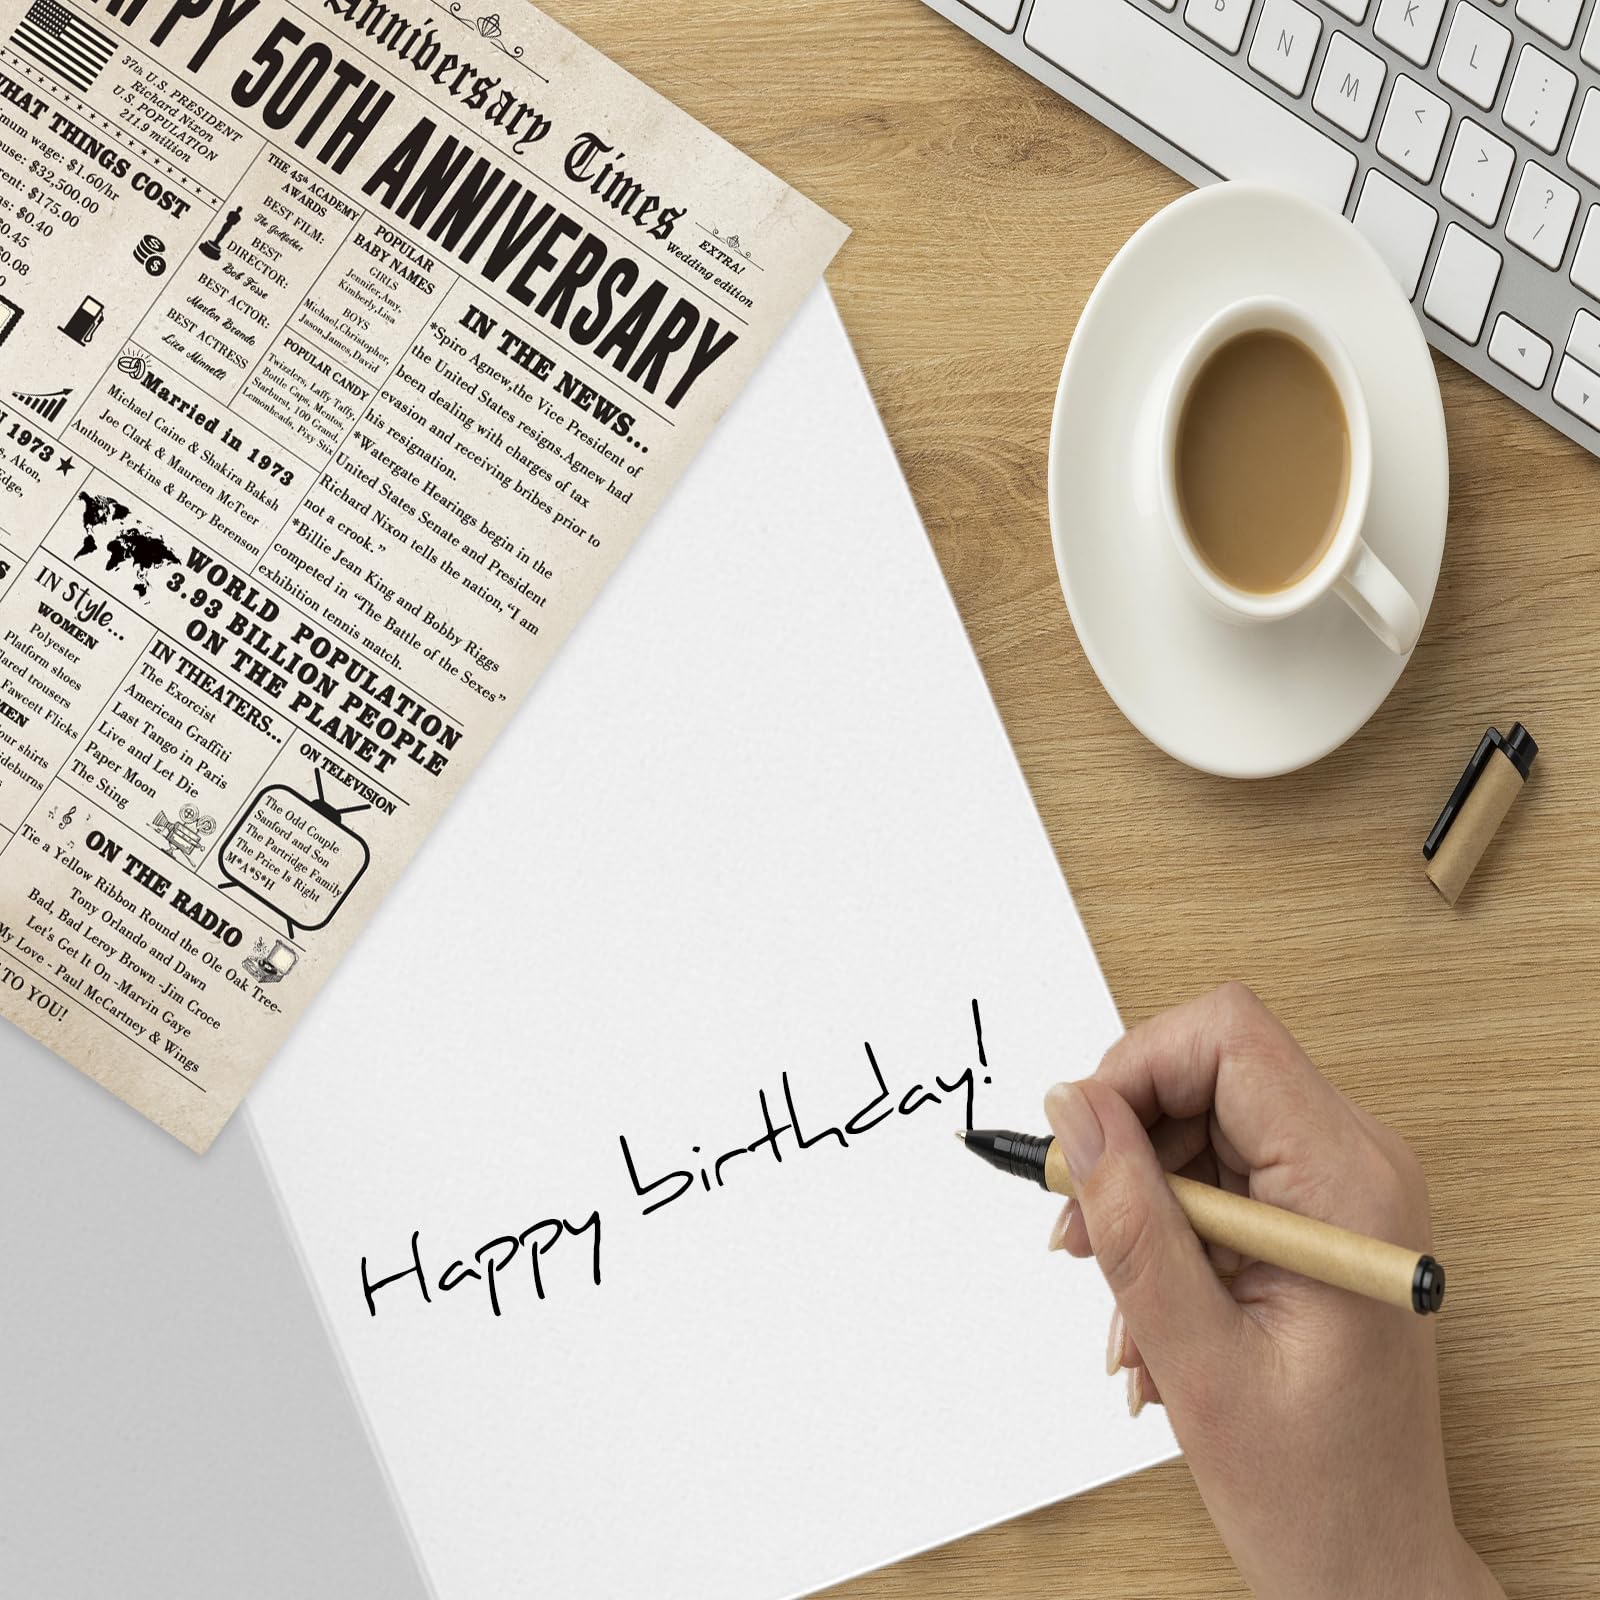 Anniversary Times
EXTRA!
Wedding edition
HAPPY 50TH ANNIVERSARY
37th U.S. PRESIDENT
Richard Nixon
U.S. POPULATION
211.9 million
WHAT THINGS COST
wage: $1.60/hr
$32,500.00
$175.00
$0.40
THE 45th ACADEMY
AWARDS
BEST FILM:
The Godfather
BEST
DIRECTOR:
Bob Fosse
BEST ACTOR:
Marlon Brando
BEST ACTRESS
Liza Minnelli
POPULAR
BABY NAMES
GIRLS
Jennifer,Amy,
Kimberly,Lisa
BOYS
Michael,Christopher,
Jason,James,David
POPULAR CANDY
Twizzlers, Laffy Taffy,
Bottle Caps, Mentos,
Starburst, 100 Grand,
Lemonheads, Pixy Stix
IN THE NEWS...
*Spiro Agnew,the Vice President of
the United States resigns.Agnew had
been dealing with charges of tax
evasion and receiving bribes prior to
his resignation.
*Watergate Hearings begin in the
United States Senate and President
Richard Nixon tells the nation, "I am
not a crook."
*Billie Jean King and Bobby Riggs
competed in "The Battle of the Sexes"
exhibition tennis match.
Married in 1973
Michael Caine & Shakira Baksh
Joe Clark & Maureen McTeer
Anthony Perkins & Berry Berenson
1973
Akon,
Edge,
WORLD POPULATION
3.93 BILLION PEOPLE
ON THE PLANET
IN Style...
WOMEN
Polyester
Platform shoes
trousers
Fawcett Flicks
shirts
IN THEATERS...
The Exorcist
American Graffiti
Last Tango in Paris
Live and Let Die
Paper Moon
The Sting
ON TELEVISION
The Odd Couple
Sanford and Son
The Partridge Family
The Price Is Right
M*A*S*H
ON THE RADIO
Tie a Yellow Ribbon Round the Ole Oak Tree-
Tony Orlando and Dawn
Bad, Bad Leroy Brown -Jim Croce
Let's Get It On -Marvin Gaye
My Love - Paul McCartney & Wings
TO YOU!
Happy birthday!
B
N
M
K
L
<
,
>
.
:
;
?
/